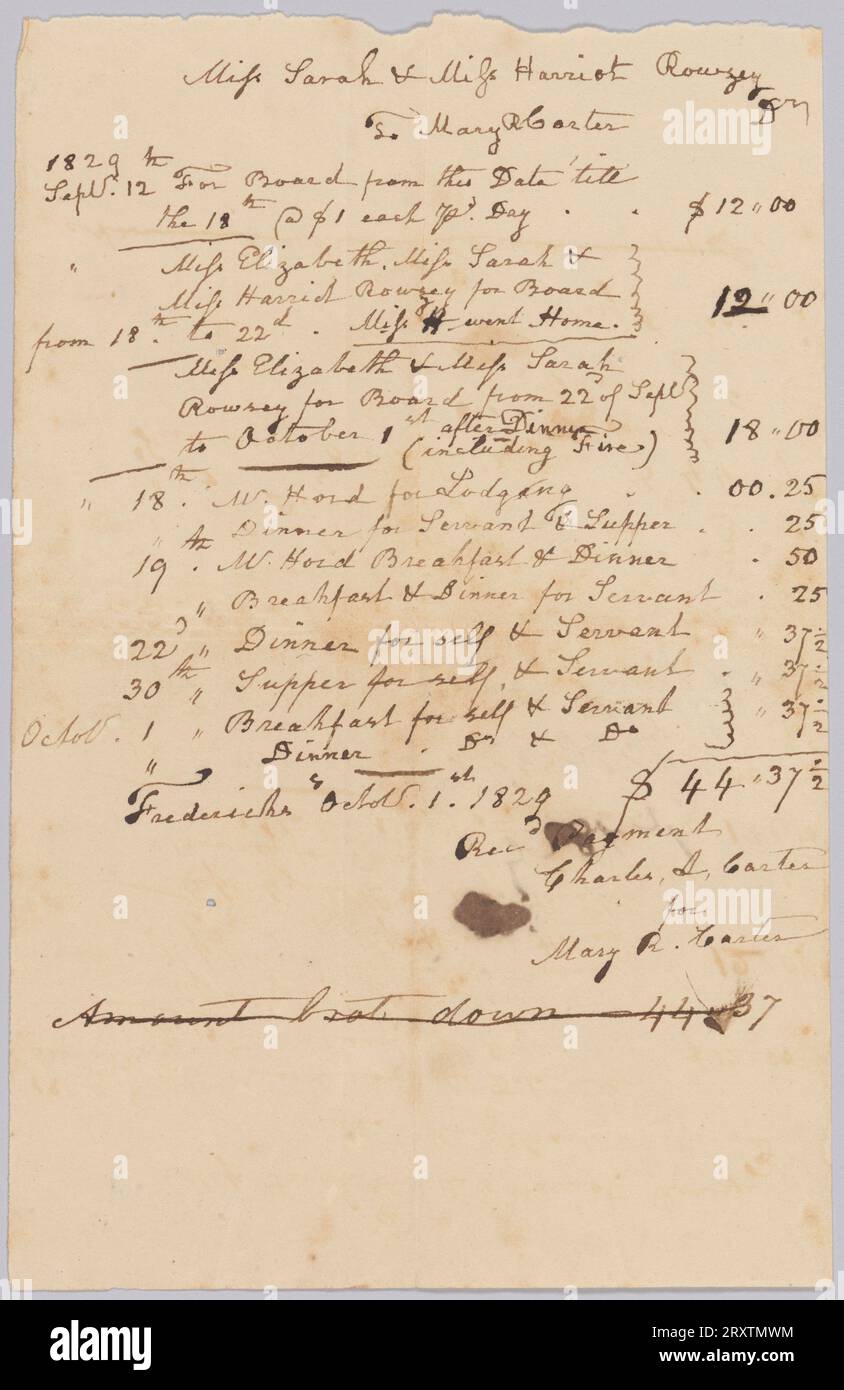 Miss Sarah & Miss Harriot Rowzey
Dr
To Mary R Carter
1829
Sepbr. 12th For Board from this Date till
the 18th @ $1 each pr. Day . . $12"00
" Miss Elizabeth, Miss Sarah &
Miss Harriot Rowzey for Board 12"00
from 18th. to 22d . Miss H went Home.
Miss Elizabeth & Miss Sarah
Rowzey for Board from 22d of Sepbr
to October 1st after Dinner 18"00
(including Fire)
" 18th . W. Hord for Lodging . . 00.25
" Dinner for Servant & Supper . . 25
19th . W. Hord Breakfast & Dinner . 50
" Breakfast & Dinner for Servant . 25
22d " Dinner for self & Servant " 37½
30th " Supper for self, & Servant . " 37½
Octobr. 1 " Breakfast for self & Servant " 37½
" Dinner . Do & Do
$ 44"37½
Fredericks Octobr. 1st. 1829
Recd Payment
Charles, Carter
for
Mary R. Carter
Amount brot down 44"37
alamy
Image ID: 2RXTMWM
www.alamy.com